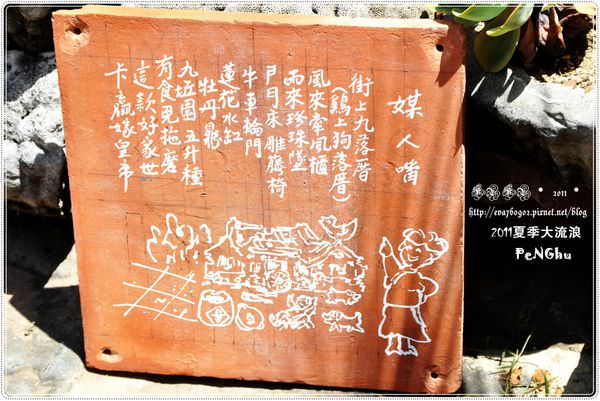 媒人嘴
街上九落厝
(鷄上狗落厝)
風來牽風櫃
雨來珍珠墜
門床雕藤椅
牛車輪門
蓮花水缸
牡丹
九坵園五斗種
有食免拖磨
這款好家世
卡贏嫁皇帝
2011
http://eva760902.pixnet.net/blog
2011夏季大流浪
PeNGhu